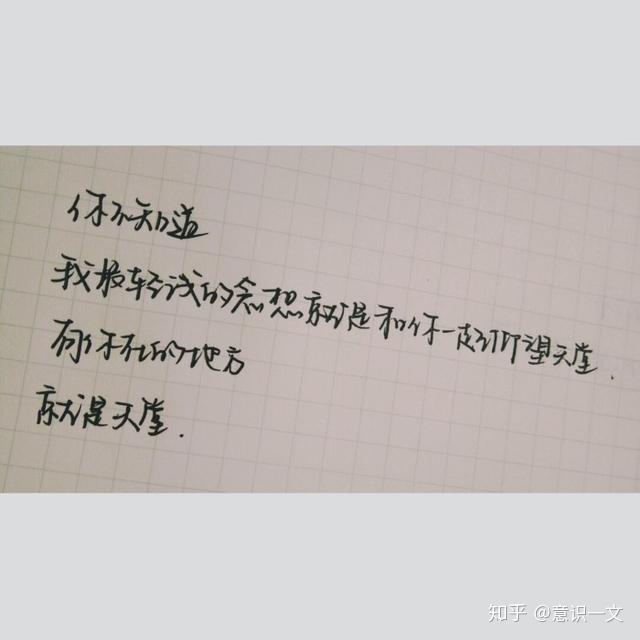 你不知道
我最轻浅的念想就是和你一起仰望天堂.
有你在的地方
就是天堂.
知乎 @意识一文